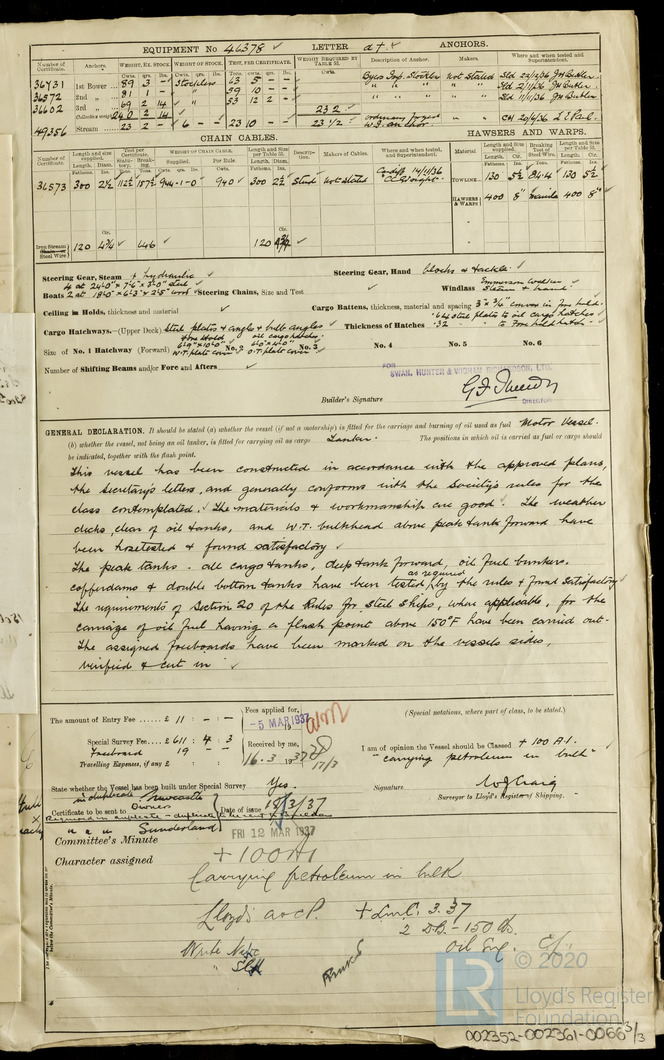 EQUIPMENT No 46378 LETTER a†. ANCHORS.
Number of Certificate. Anchors. WEIGHT, EX. STOCK. WEIGHT OF STOCK. TEST, PER CERTIFICATE. WEIGHT REQUIRED BY TABLE 53. Description of Anchor. Makers. Where and when tested and Superintendent.
36731 1st Bower 89 3 - Stockless 63 5 - - Byers Imp. Stockless Not Stated Sld 22/2/36 J.H. Butler
36572 2nd " 81 1 - " 59 10 - - " " " " "
36602 3rd " 69 2 14 " 53 12 2 - " " " " " Sld 11/11/36 J.H. Butler
Collective weight 240 2 14 232
49356 Stream 23 2 - 6 - - 23 10 - - 23 1/2 ordinary forged W.I. anchor " " CH 20/6/36
CHAIN CABLES. HAWSERS AND WARPS.
Number of Certificate. Length and size supplied. Test per Certificate. WEIGHT OF CHAIN CABLE. Length and size per Table 53. Description. Makers of Cables. Where and when tested, and Superintendent. Material Length and Size supplied. Breaking Test of Steel Wire. Length and Size per Table 53.
36573 300 2½ 112½ 157½ 944-1-0 940 300 2½ Stud Not Stated Cardiff 14/11/36
TOWLINE 130 5½ 130 5½
HAWSERS & WARPS 400 8" Manila 400 8"
Iron Stream Chain or Steel Wire 120 4¾ 46 120 4¾
Steering Gear, Steam & hydraulic Steering Gear, Hand blocks & tackle.
Boats 4 at 24'0" x 7'6" x 3'0" steel
2 at 18'0" x 6'3" x 2'5" wood Steering Chains, Size and Test Windlass Emmerson Walker Steam & hand
Ceiling in Holds, thickness and material Cargo Battens, thickness, material and spacing 3" x ¾" canvas in fore hold.
Cargo Hatchways.—(Upper Deck) Steel plates & angles & bulb angles Thickness of Hatches .32 - to Fore hold hatch
Size of No. 1 Hatchway (Forward) No. 2 No. 3 No. 4 No. 5 No. 6
W.T. plate cover O.T. plate cover
Number of Shifting Beams and/or Fore and Afters
FOR
SWAN, HUNTER & WIGHAM RICHARDSON, LTD.
Builder's Signature
DIRECTOR
GENERAL DECLARATION. It should be stated (a) whether the vessel (if not a motorship) is fitted for the carriage and burning of oil used as fuel Motor Vessel.
(b) whether the vessel, not being an oil tanker, is fitted for carrying oil as cargo Tanker. The positions in which oil is carried as fuel or cargo should
be indicated, together with the flash point.
This vessel has been constructed in accordance with the approved plans,
the Secretary's letters, and generally conforms with the Society's rules for the
class contemplated. The materials & workmanship are good. The weather
decks, clear of oil tanks, and W.T. bulkhead above peak tank forward have
been hosetested & found satisfactory
The peak tanks. all cargo tanks, deep tank forward, oil fuel bunkers.
cofferdams & double bottom tanks have been tested as required by the rules & found satisfactory
The requirements of Section 20 of the Rules for Steel Ships, where applicable, for the
carriage of oil fuel having a flash point above 150°F have been carried out.
The assigned freeboards have been marked on the vessels sides,
verified & cut in
The amount of Entry Fee £ 11 : - : - Fees applied for, (Special notations, where part of class, to be stated.)
-5 MAR 1937
Special Survey Fee £ 611 : 4 : 3
Freeboard 19 - - Received by me, I am of opinion the Vessel should be Classed + 100 A1.
Travelling Expenses, if any £ : : 16.3.1937 17/3 "carrying petroleum in bulk"
State whether the Vessel has been built under Special Survey Yes. Signature W.J. Craig
Surveyor to Lloyd's Register of Shipping.
in duplicate Newcastle
Certificate to be sent to Owners Date of issue 18/3/37
" " " Sunderland
Committee's Minute FRI 12 MAR 1937
Character assigned +100A1
Carrying petroleum in bulk
Lloyd's a & c P. + LMC. 3.37
2 DB - 150 lb.
Oil Eng.
LR © 2020
Lloyd's Register
Foundation
002352-002361-0066 3/3